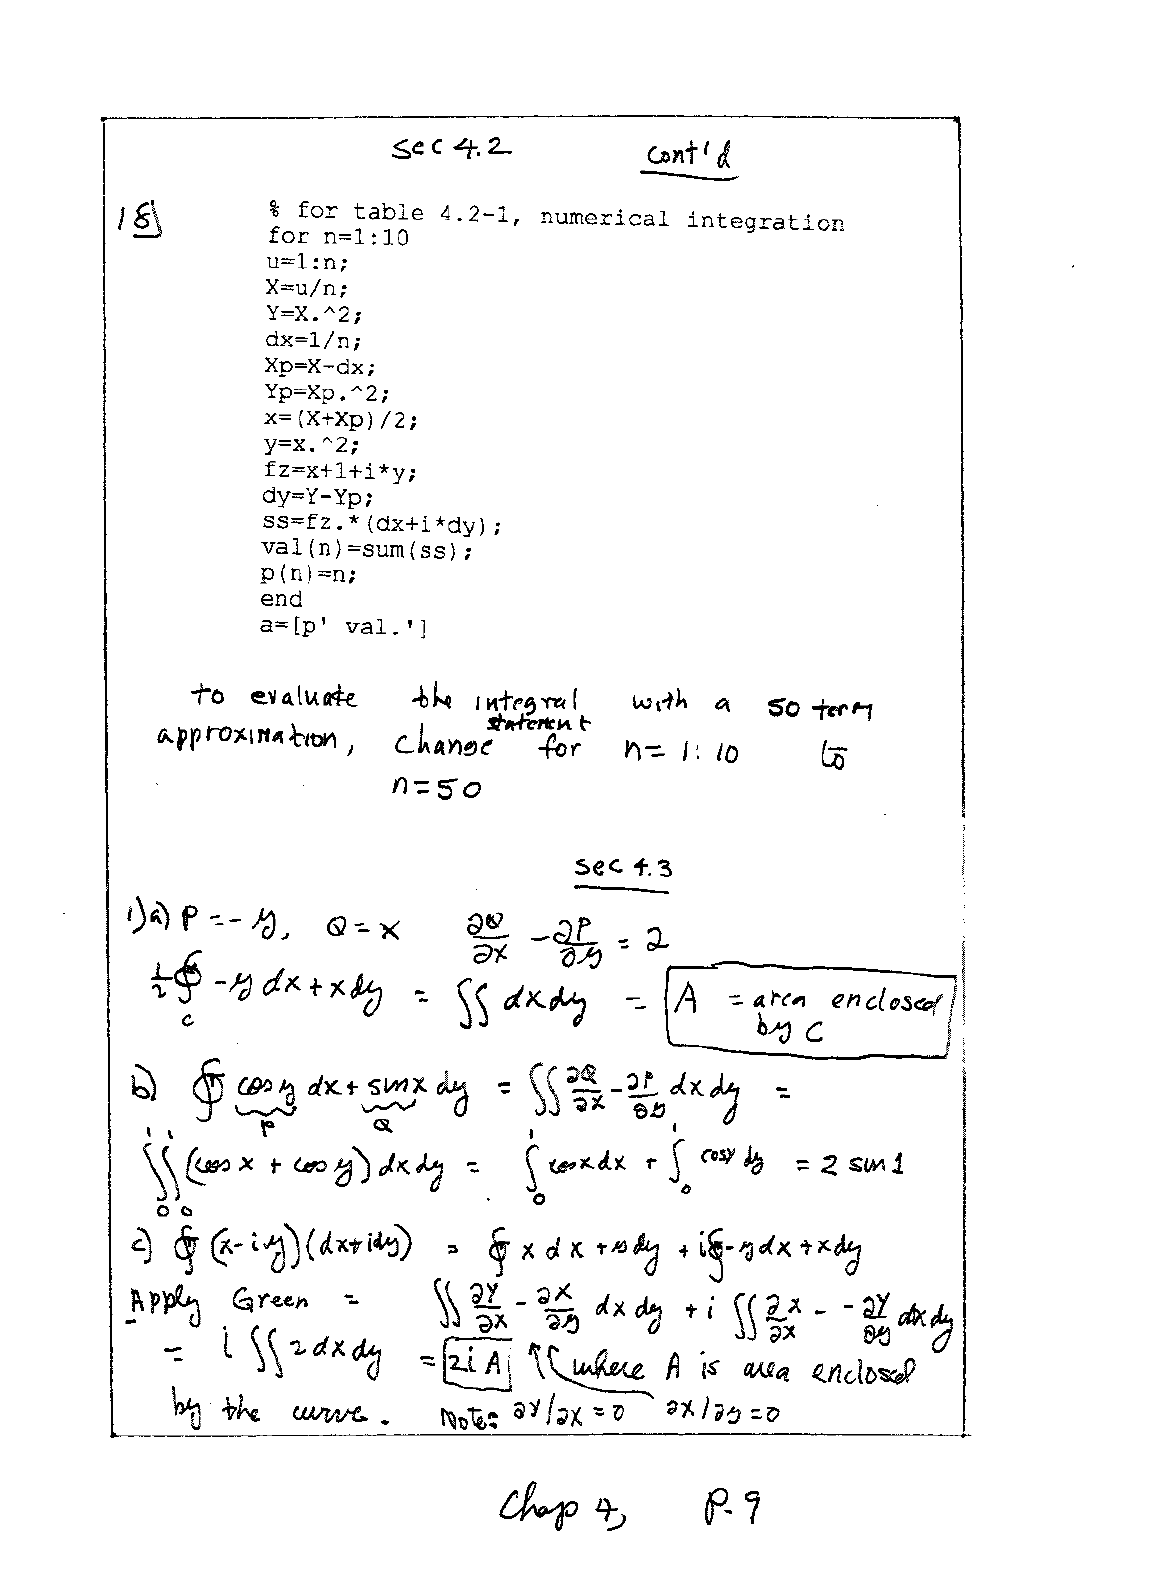 sec 4.2 cont'd
18) % for table 4.2-1, numerical integration
for n=1:10
u=1:n;
X=u/n;
Y=X.^2;
dx=1/n;
Xp=X-dx;
Yp=Xp.^2;
x=(X+Xp)/2;
y=x.^2;
fz=x+1+i*y;
dy=Y-Yp;
ss=fz.*(dx+i*dy);
val(n)=sum(ss);
p(n)=n;
end
a=[p' val.']
to evaluate the integral with a 50 term
approximation, change for statement n= 1:10 to
n=50
sec 4.3
1)a) P = -y, Q = x ∂Q/∂x - ∂P/∂y = 2
1/2 ∮_C -y dx + x dy = ∬ dxdy = A = area enclosed
by C
b) ∮ cos y dx + sin x dy = ∬ ∂Q/∂x - ∂P/∂y dx dy =
P Q
∫_0^1 ∫_0^1 (cos x + cos y) dx dy = ∫_0^1 cos x dx + ∫_0^1 cos y dy = 2 sin 1
c) ∮ (x-iy)(dx+idy) = ∮ x dx + y dy + i∮ -y dx + x dy
Apply Green = ∬ ∂Y/∂x - ∂X/∂y dx dy + i ∬ ∂x/∂x - -∂Y/∂y dx dy
= i ∬ 2 dx dy = 2iA where A is area enclosed
by the curve. Note: ∂Y/∂x = 0 ∂x/∂y = 0
Chap 4, P. 9